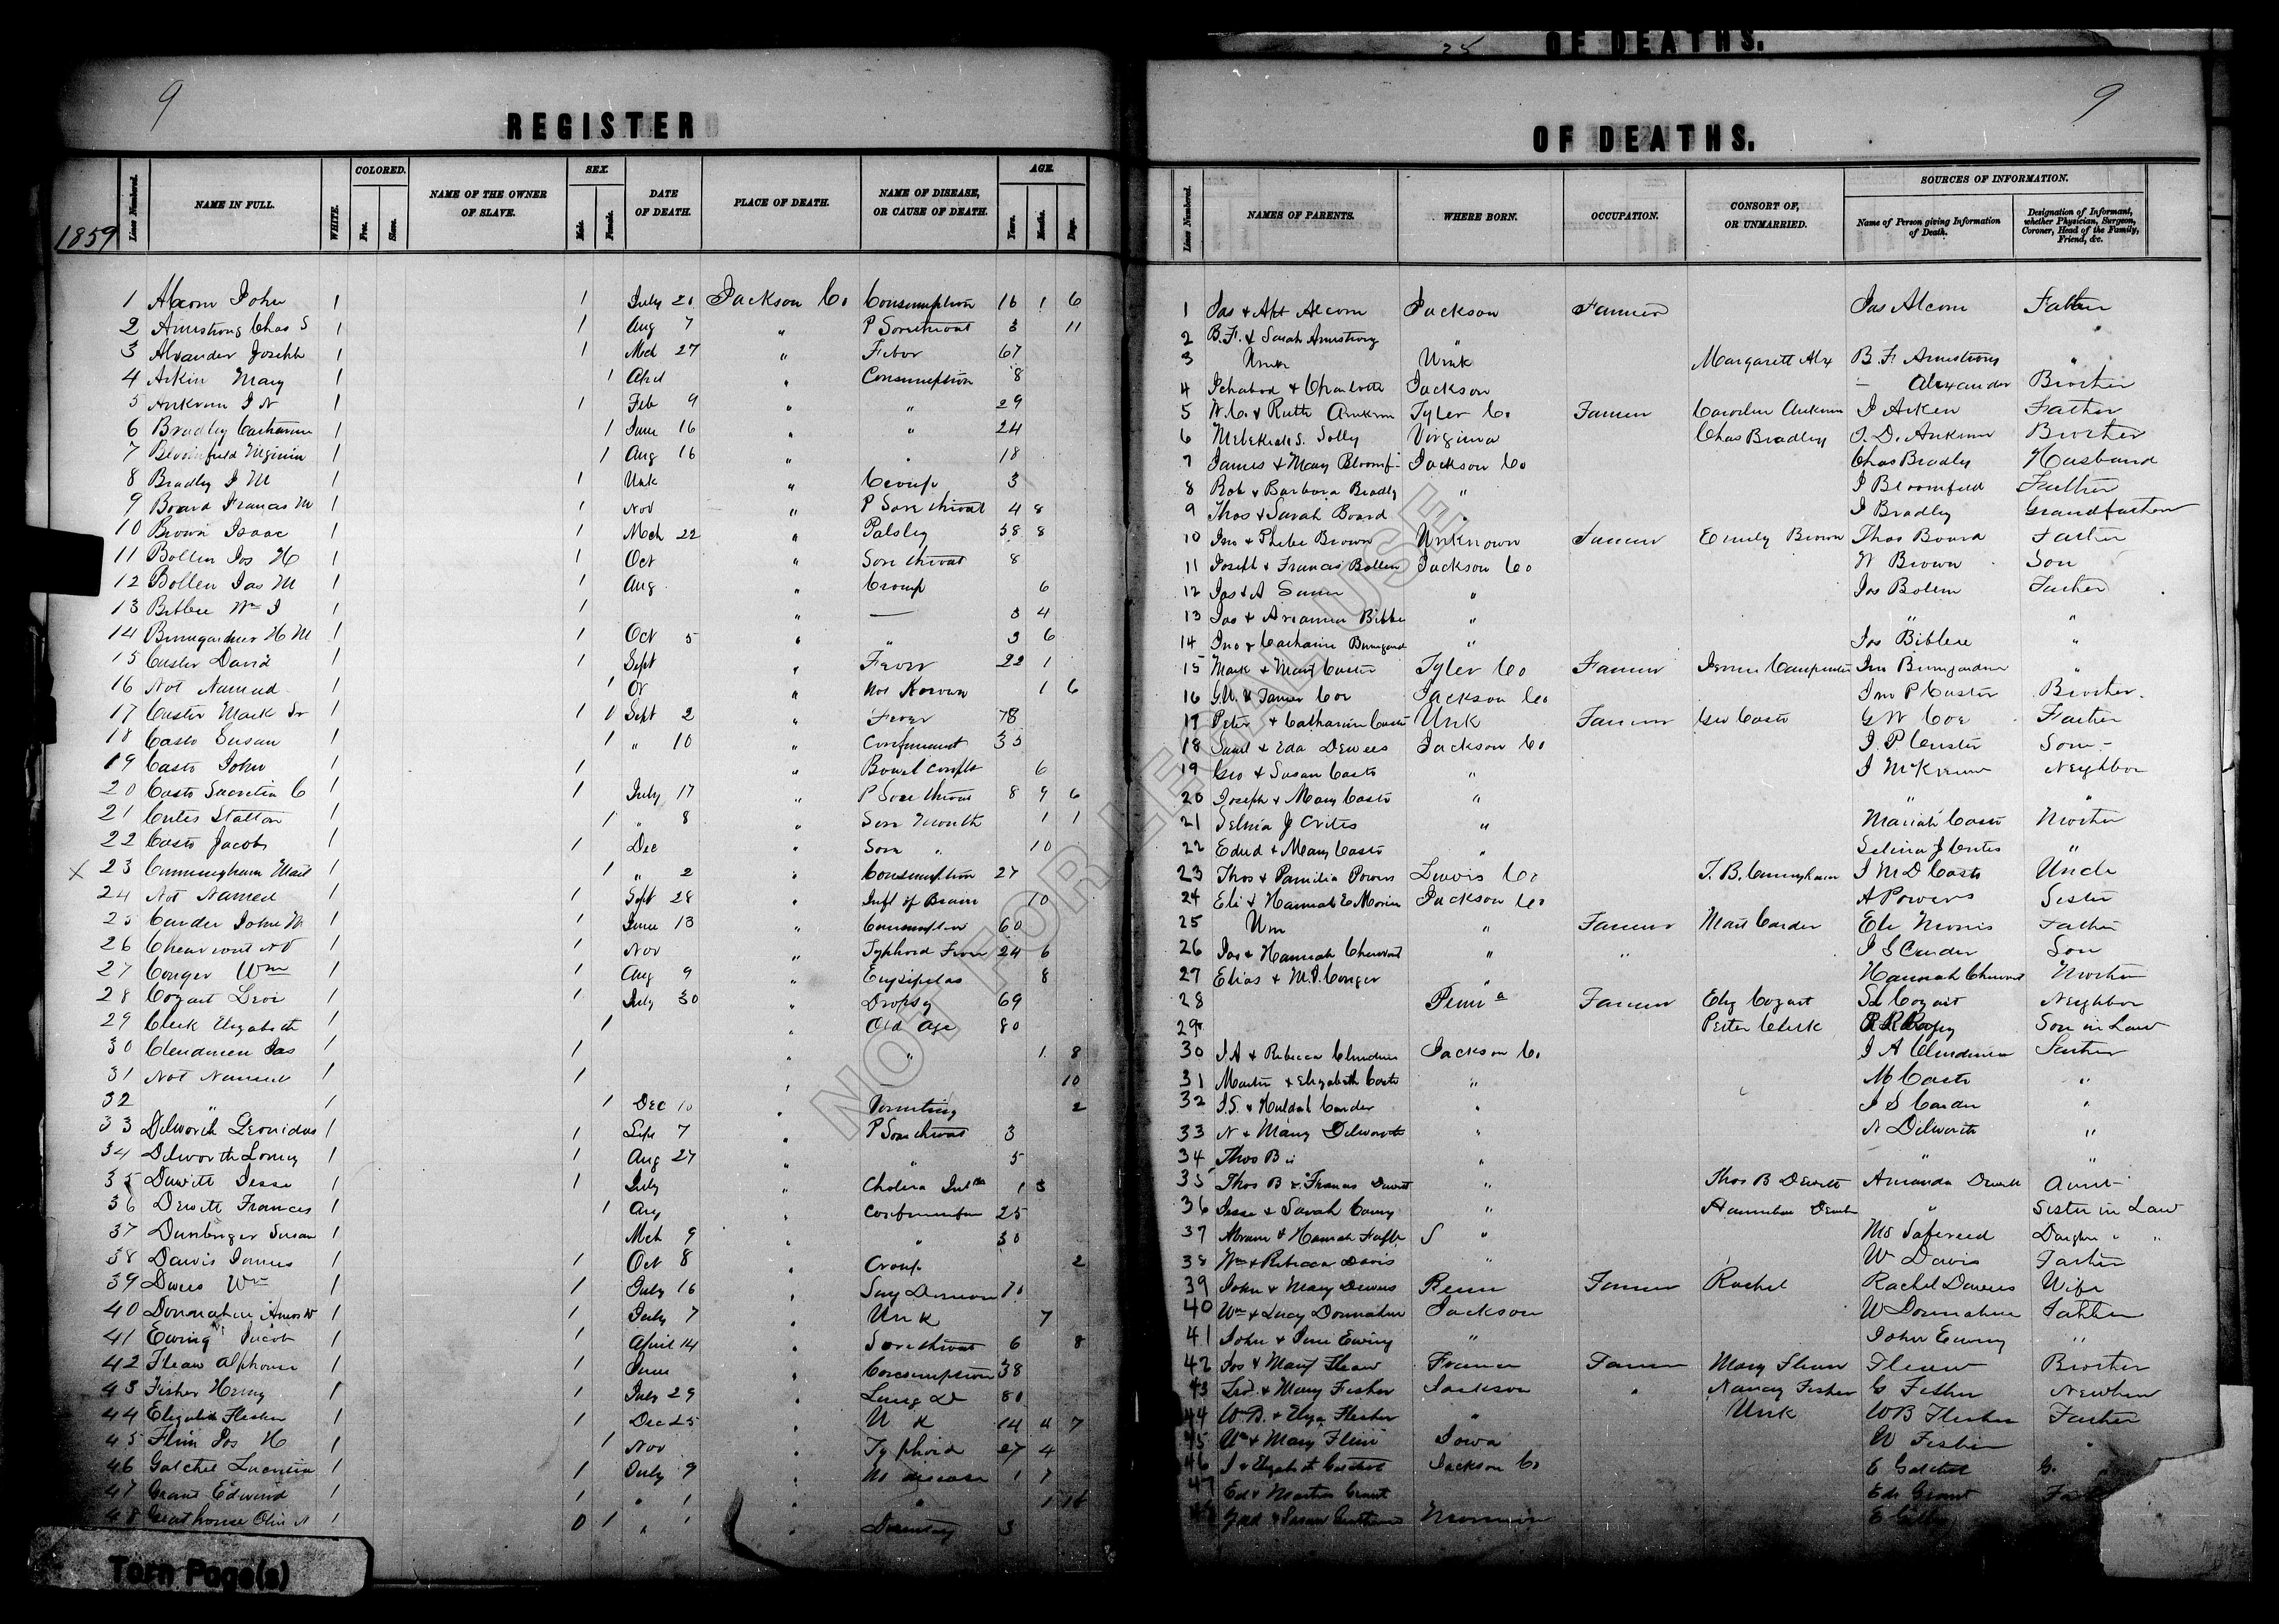 25 OF DEATHS.
9 9
REGISTER OF DEATHS.
1859
Lines Numbered. NAME IN FULL. WHITE. COLORED. Free. Slave. NAME OF THE OWNER OF SLAVE. SEX. Male. Female. DATE OF DEATH. PLACE OF DEATH. NAME OF DISEASE, OR CAUSE OF DEATH. AGE. Years. Months. Days.
1 Alcorn John 1 1 July 20 Jackson Co Consumption 16 1 6
2 Armstrong Chas S 1 1 Aug 7 " P Sorethroat 3 11
3 Alxander Joseph 1 1 Mch 27 " Fever 67
4 Arkin Mary 1 1 April " Consumption 8
5 Ankrom J N 1 1 Feb 9 " " 29
6 Bradley Catharine 1 1 June 16 " " 24
7 Bloomfield Virginia 1 1 Aug 16 " " 18
8 Bradley J M 1 1 Unk " Croup 3
9 Board Francis M 1 1 Nov " P Sorethroat 4 8
10 Brown Isaac 1 1 Mch 22 " Palsley 58 8
11 Bollen Jos H 1 1 Oct " Sorethroat 8
12 Bollen Jas M 1 1 Aug " Croup 6
13 Biblere Wm J 1 1 " — 3 4
14 Bumgardner H M 1 1 Oct 5 " " 3 6
15 Custer David 1 1 Sept " Fever 22 1
16 Not Named 1 1 " Not Known 1 6
17 Custer Mark Sr 1 1 0 Sept 2 " Fever 78
18 Casto Susan 1 1 " 10 " Confinment 35
19 Casto John 1 1 " Bowel complt 6
20 Casto Sacretia C 1 1 July 17 " P Sore throat 8 9 6
21 Crites Statton 1 1 " 8 " Sore Mouth 1 1
22 Casto Jacob 1 1 Dec " Sore " 10
x 23 Cunningham Mart 1 1 " 2 " Consumption 27
24 Not Named 1 1 Sept 28 " Infl of Brain 10
25 Carder John W 1 1 June 13 " Consumption 60
26 Cheuvront 1 1 Nov " Typhoid Fever 24 6
27 Conger Wm 1 1 Aug 9 " Erysipelas 8
28 Cozart Levi 1 1 July 30 " Dropsy 69
29 Clerk Elizabeth 1 1 " Old Age 80
30 Clendinen Jas 1 1 " " 1 8
31 Not Named 1 1 " — 10
32 " 1 1 Dec 10 " Vomiting 2
33 Dilworth Leonidas 1 1 Sept 7 " P Sorethroat 3
34 Dilworth 1 1 Aug 27 " " 5
35 Dewitt Jesse 1 1 July " Cholera 1 3
36 Dewitt Frances 1 1 Aug " 25
37 Susan 1 Mch 9 " " 30
38 Davis James 1 1 Oct 8 " Croup 2
39 Dewees Wm 1 1 July 16 "
40 Donnahue Amos W 1 1 July 7 " Unk 7
41 Ewing Jacob 1 1 April 14 " Sorethroat 6 8
42 Fleaw Alphonse 1 1 June " Consumption 38
43 Fisher Henry 1 1 July 29 " Lung D 80
44 Elizabeth Flesher 1 1 Dec 25 " U K 14 4 7
45 Flinn Jos H 1 1 Nov " Typhoid 27 4
46 Gatchel Lucretia 1 1 July 9 " disease 1 7
47 Grant Edward 1 1 " 1 " " 1 16
48 Greathouse Olive N 1 0 1 " 1 " Dysentery 3
Torn Page(s)
Lines Numbered. NAMES OF PARENTS. WHERE BORN. OCCUPATION. CONSORT OF, OR UNMARRIED. SOURCES OF INFORMATION. Name of Person giving Information of Death. Designation of Informant, whether Physician, Surgeon, Coroner, Head of the Family, Friend, &c.
1 Jas & Alcorn Jackson Farmer Jas Alcorn Father
2 B. F. & Sarah Armstrong " "
3 Unk Unk Margarett Alex B. F. Armstrong "
4 Ichabod & Charlotte Jackson — Alexander Brother
5 W. C. & Ruth Ankrom Tyler Co Farmer Caroline Ankrom J Arken Father
6 Melekiah S. Solley Virginia Chas Bradley J. D. Ankrom Brother
7 James & Mary Bloomf Jackson Co Chas Bradley Husband
8 Rob & Barbara Bradly " J Bloomfield Father
9 Thos & Sarah Board " J Bradley Grandfather
10 Jno & Phebe Brown Unknown Farmer Emily Brown Thos Board Father
11 Joseph & Francis Bollen Jackson Co W Brown Son
12 Jas & A Same " Jos Bolem Father
13 Jas & Arianna Bibbe " " "
14 Jno & Catharine Bumgard " Jas Biblere "
15 Mark & Mary Custer Tyler Co Farmer Jennie Carpenter Jno Bumgardner "
16 G. W. & James Coe Jackson Co Jno P Custer Brother
17 Peter & Catharine Custer Unk Farmer Geo Casto G W Coe Father
18 Saml & Eda Dewees Jackson Co J. P. Custer Son
19 Geo & Susan Casto " J McKown Neighbor
20 Joseph & Mary Casto " " "
21 Selina J Crites " Mariah Casto Mother
22 Edwd & Mary Casto " Selina J Crites "
23 Thos & Pamilia Powers Lewis Co T. B. Cunningham J M D Casto Uncle
24 Eli & Hannah E Morris Jackson Co A Powers Sister
25 Unn " Farmer Mart Carder Eli Morris Father
26 Jas & Hannah Cheuvront " " J S Carder Son
27 Elias & M. J. Conger " Hannah Cheuvront Mother
28 Penna Farmer Eliz Cozart Cozart Neighbor
29 Peter Clerk Son in Law
30 J A & Rebecca Clendinen Jackson Co J A Clendinen Father
31 Martin & Elizabeth Casto " M Casto "
32 J. S. & Huldah Carder " J S Carder "
33 N & Mary Dilworth " N Dilworth "
34 Thos B " " "
35 Thos B & Frances Dewitt " Thos B Dewitt Amanda Dewitt Aunt
36 Jesse & Sarah Carney " Dewitt " Sister in Law
37 Abram & Hannah " " "
38 Wm & Rebecca Davis " W Davis Father
39 John & Mary Dewees Penn Farmer Rachel Rachel Dewees Wife
40 Wm & Lucy Donnahue Jackson W Donnahue Father
41 John & Jane Ewing " John Ewing "
42 Jos & Mary Fleaw France Farmer Mary Fleaw Fleaw Brother
43 & Mary Fisher Jackson " Nancy Fisher G Fisher Nephew
44 W. B. & Eliza Flesher " Unk W B Flesher Father
45 Wm & Mary Flinn Iowa W "
46 J & Elizabeth Gatchel Jackson Co E Gatchel G. "
47 Ed & Martha Grant Ed Grant
48 & Susan
NOT FOR LEGAL USE